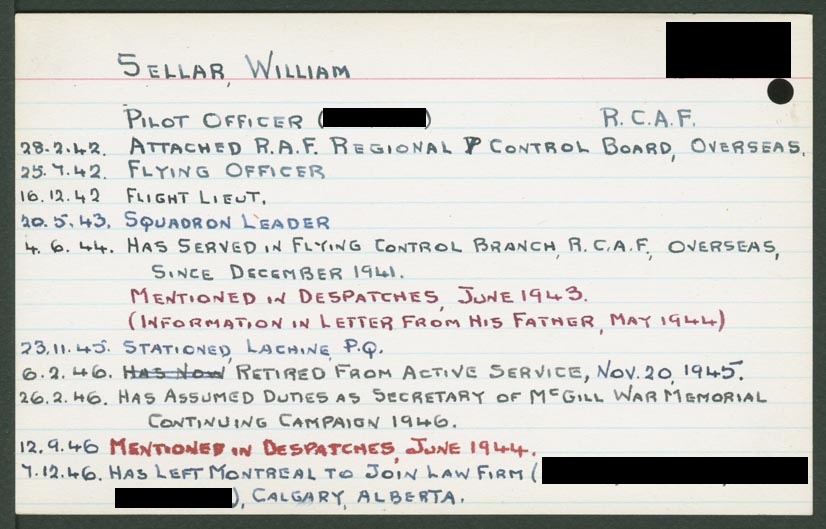 SELLAR, WILLIAM
PILOT OFFICER ( ) R.C.A.F.
28.2.42. ATTACHED R.A.F. REGIONAL CONTROL BOARD, OVERSEAS.
25.7.42. FLYING OFFICER
16.12.42 FLIGHT LIEUT.
20.5.43. SQUADRON LEADER
4.6.44. HAS SERVED IN FLYING CONTROL BRANCH, R.C.A.F., OVERSEAS,
SINCE DECEMBER 1941.
MENTIONED IN DESPATCHES, JUNE 1943.
(INFORMATION IN LETTER FROM HIS FATHER, MAY 1944)
23.11.45. STATIONED, LACHINE, P.Q.
6.2.46. HAS NOW RETIRED FROM ACTIVE SERVICE, NOV. 20, 1945.
26.2.46. HAS ASSUMED DUTIES AS SECRETARY OF McGILL WAR MEMORIAL
CONTINUING CAMPAIGN 1946.
12.9.46 MENTIONED IN DESPATCHES, JUNE 1944.
7.12.46. HAS LEFT MONTREAL TO JOIN LAW FIRM (
), CALGARY, ALBERTA.